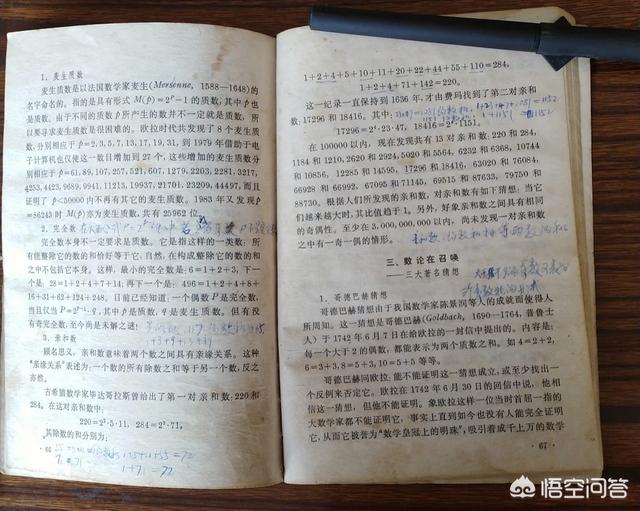 1．麦生质数
麦生质数是以法国数学家麦生(Mersenne, 1588—1648)的
名字命名的。指的是具有形式 M(p)=2ᵖ−1的质数,其中 p也
是质数。由于不同的质数 p所产生的数并不一定就是质数,所
以要寻求麦生质数是很困难的。欧拉时代共发现了 8 个麦生质
数,分别相应于 p=2,5,7,13,17,19,31,到 1979 年借助于电
子计算机也仅使这一数目增加到 27 个,这些增加的麦生质数分
别相应于 p=61,89,107,257,521,607,1279,2203,2281,3217,
4253,4423,9689,9941,11213,19937,21701,23209,44497,而且
证明了 p<50000 内不再有其它的麦生质数。1983 年又发现 p
=86243 时 M(p)亦为麦生质数,共有 25962 位。
2．完全数
完全数本身不一定要求是质数。它是指这样的一类数：所有
能整除它的数的和恰好等于它,自然,在构成整除它的数的和
之中不包括它本身。这样,最小的完全数是：6=1+2+3,下一
个是：28=1+2+4+7+14；再下一个是：496=1+2+4+8+
16+31+62+124+248。目前已经知道：一个偶数 P 是完全数,
当且仅当 P=2ᵖ⁻¹·q,其中 p是质数,q是麦生质数。但有没
有奇完全数,至今尚是未解之谜！
3．亲和数
顾名思义,亲和数意味着两个数之间具有亲缘关系。这种
“亲缘关系”表述为：一个数的所有除数之和等于另一个数,反之
亦然。
古希腊数学家毕达哥拉斯曾给出了第一对亲和数：220 和
284。在这对亲和数中：
220=2²·5·11, 284=2²·71,
其除数的和分别为：
66
71=71
1+71=72
1+2+4+5+10+11+20+22+44+55+110=284,
1+2+4+71+142=220。
这一纪录一直保持到 1636 年,才由费玛找到了第二对亲和
数：17296 和 18416。其中：
17296=2⁴·23·47, 18416=2⁴·1151。
在 100000 以内,现在发现共有 13 对亲和数：220 和 284,
1184 和 1210,2620 和 2924,5020 和 5564,6232 和 6368,10744
和 10856, 12285 和 14595, 17296 和 18416, 63020 和 76084,
66928 和 66992, 67095 和 71145, 69515 和 87633, 79750 和
88730。根据人们所发现的亲和数,对亲和数有如下猜想：当它
们越来越大时,其比值趋于 1。另外,好象亲和数之间具有相同
的奇偶性。至少在 3,000,000,000 以内,尚未发现一对亲和数
之中有一奇一偶的情形。
三、数论在召唤
——三大著名猜想
1．哥德巴赫猜想
哥德巴赫猜想由于我国数学家陈景润等人的成就而使得人
所周知。这一猜想是哥德巴赫(Goldbach, 1690—1764, 普鲁士
人)于 1742 年 6 月 7 日在给欧拉的一封信中提出的。内容是：
每一个大于 2 的偶数,都能表示为两个质数之和。如 4=2+2,
6=3+3, 8=5+3, 10=5+5 等等。
哥德巴赫问欧拉：能不能证明这一猜想成立,或至少找出一
个反例来否定它。欧拉在 1742 年 6 月 30 日的回信中说,他相
信这一猜想,但他不能证明。象欧拉这样的一位当时首屈一指的
大数学家都不能证明它,事实上直到如今也没有人能完全证明
它,从而它被誉为“数学皇冠上的明珠”,吸引着成千上万的数学
67
悟空问答